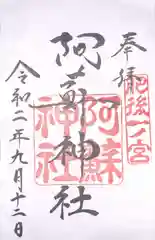 奉拝
肥後一ノ宮
阿蘇神社
阿蘇神社
令和二年九月十二日